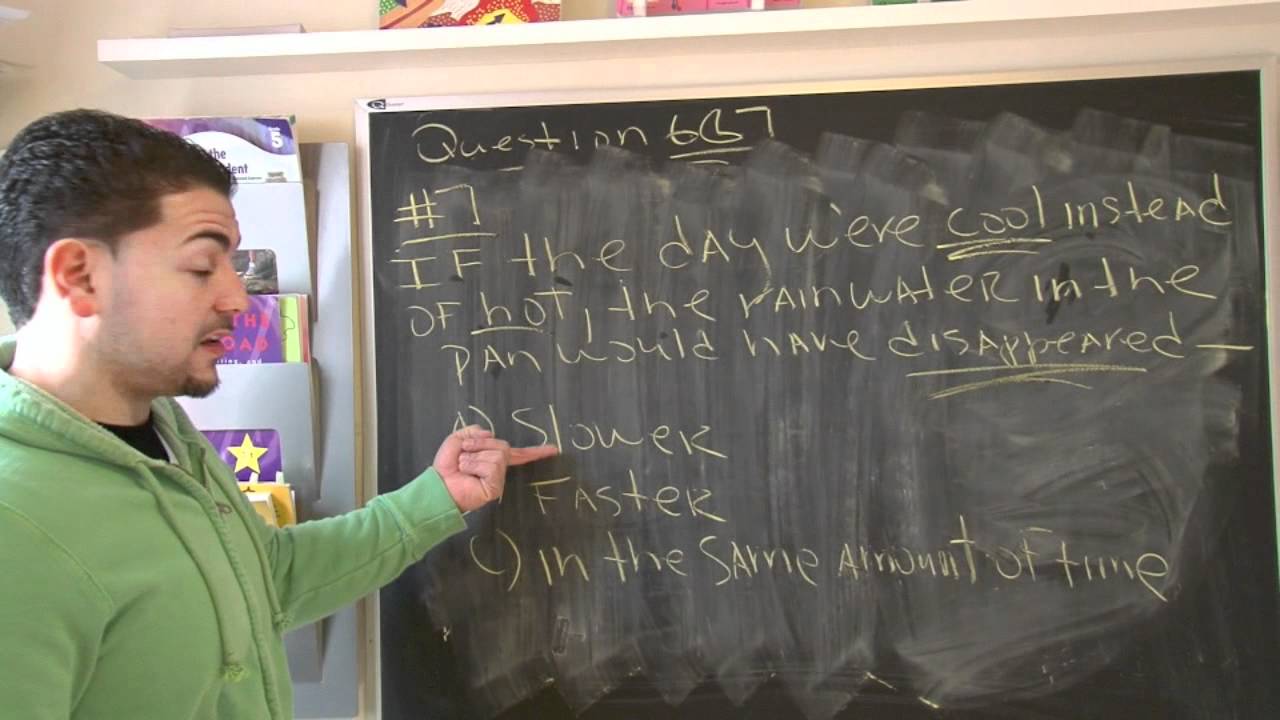 Question 6&7
#7
IF the day were cool instead
OF hot, the rainwater in the
pan would have disappeared —
A) Slower
) Faster
C) in the same amount of time
5
the
dent
THE
ROAD